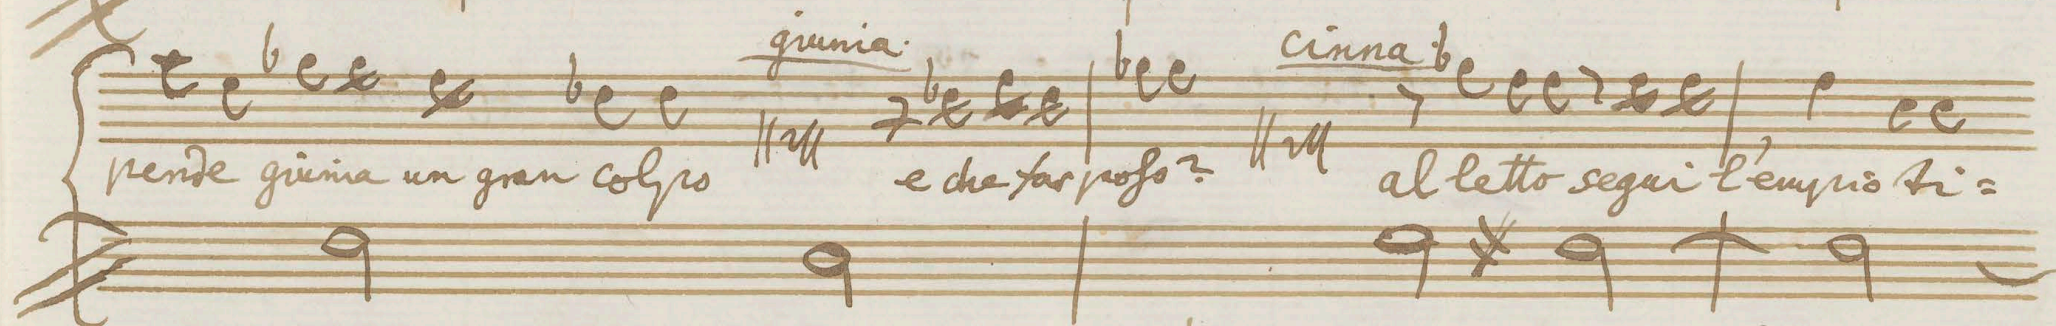 giunia. cinna.
pende giunia un gran colpo e che far posso? al letto segui l'empio ti=